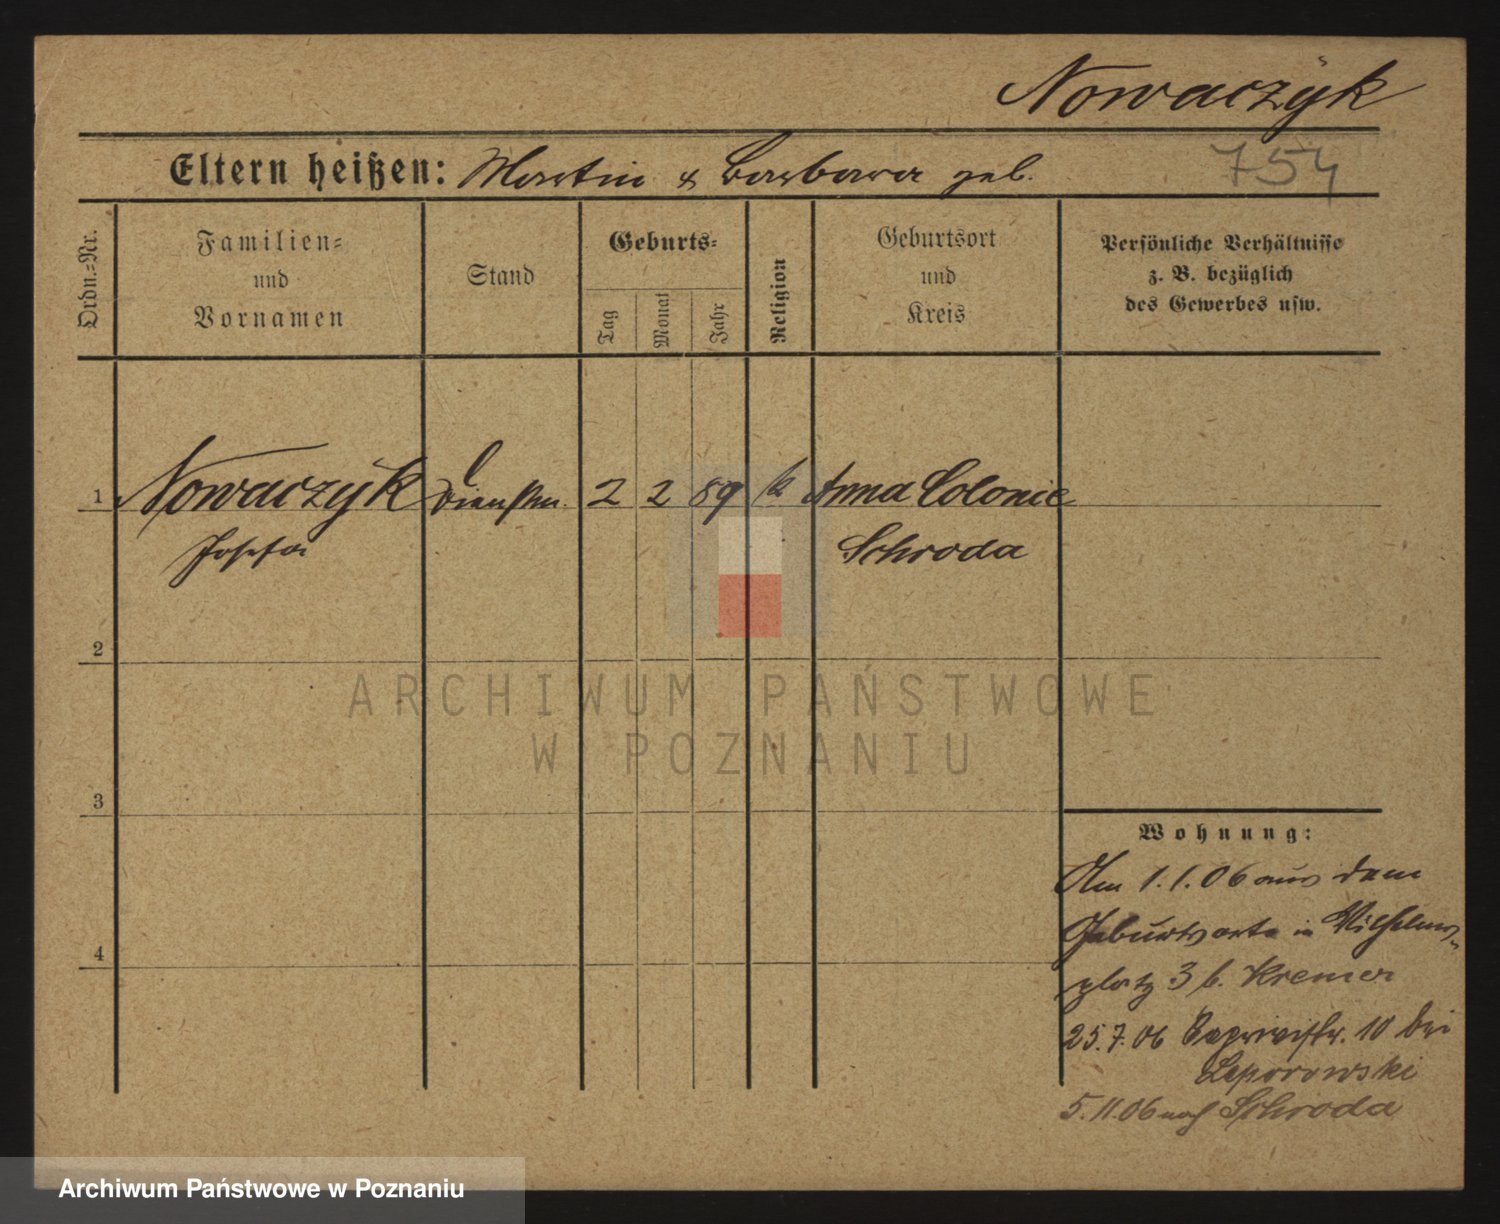 Nowaczyk
Eltern heißen: Martin & Barbara geb.
754
Ordn.=Nr.
Familien=
und
Vornamen
Stand
Geburts=
Tag
Monat
Jahr
Religion
Geburtsort
und
Kreis
Persönliche Verhältnisse
z. B. bezüglich
des Gewerbes usw.
1 Nowaczyk Dienstm. 2 2 89 k Anna Colonie
Josefa Schroda
2
3
4
Wohnung:
Am 1.1.06 aus dem
Geburtsorte in Wilhelms-
platz 3 b. Kremer
25.7.06 Caprivistr. 10 bei
Leporowski
5.11.06 nach Schroda
ARCHIWUM PAŃSTWOWE
W POZNANIU
Archiwum Państwowe w Poznaniu